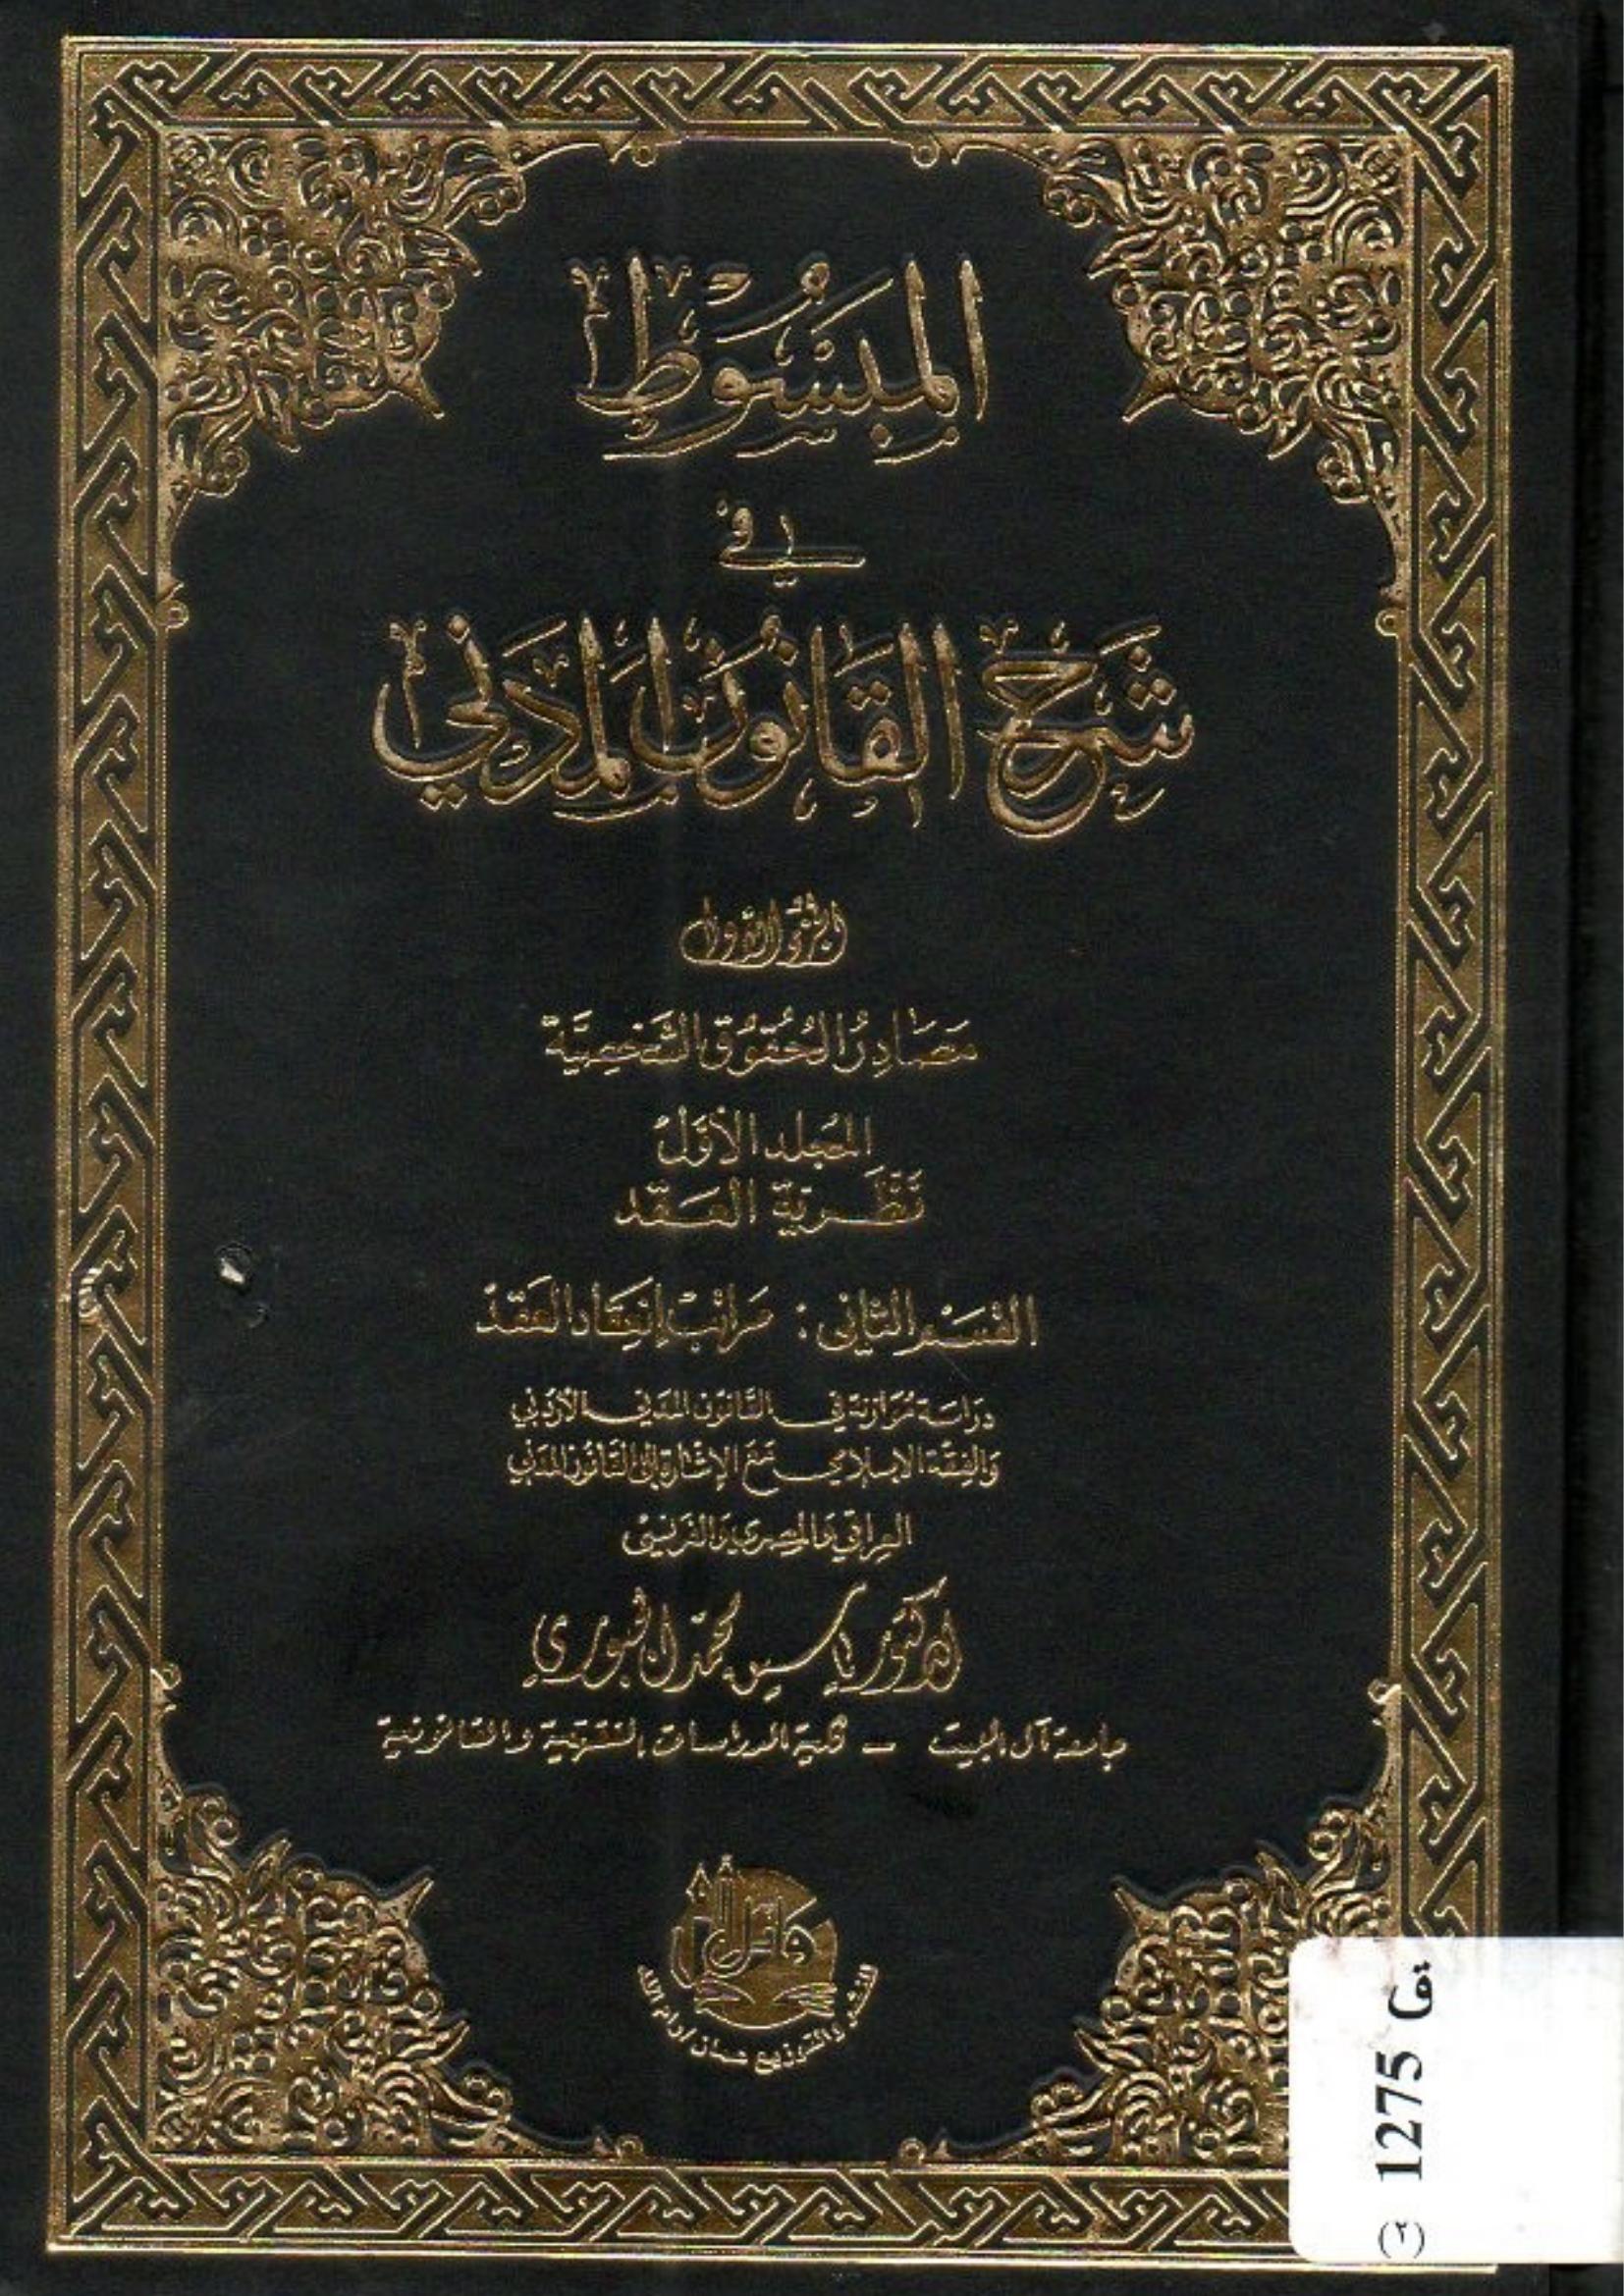 المبسوط
في
شرح القانون المدني
الجزء الأول
مصادر الحقوق الشخصية
المجلد الأول
نظرية العقد
القسم الثاني : مراتب إنعقاد العقد
دراسة موازنة في القانون المدني الأردني
والفقه الإسلامي مع الإشارة إلى القانون المدني
العراقي والمصري والفرنسي
الدكتور ياسين محمد الجبوري
جامعة آل البيت - كلية الدراسات الفقهية والقانونية
دار وائل
للنشر والتوزيع عمان / رام الله
ق 1275
(٢)